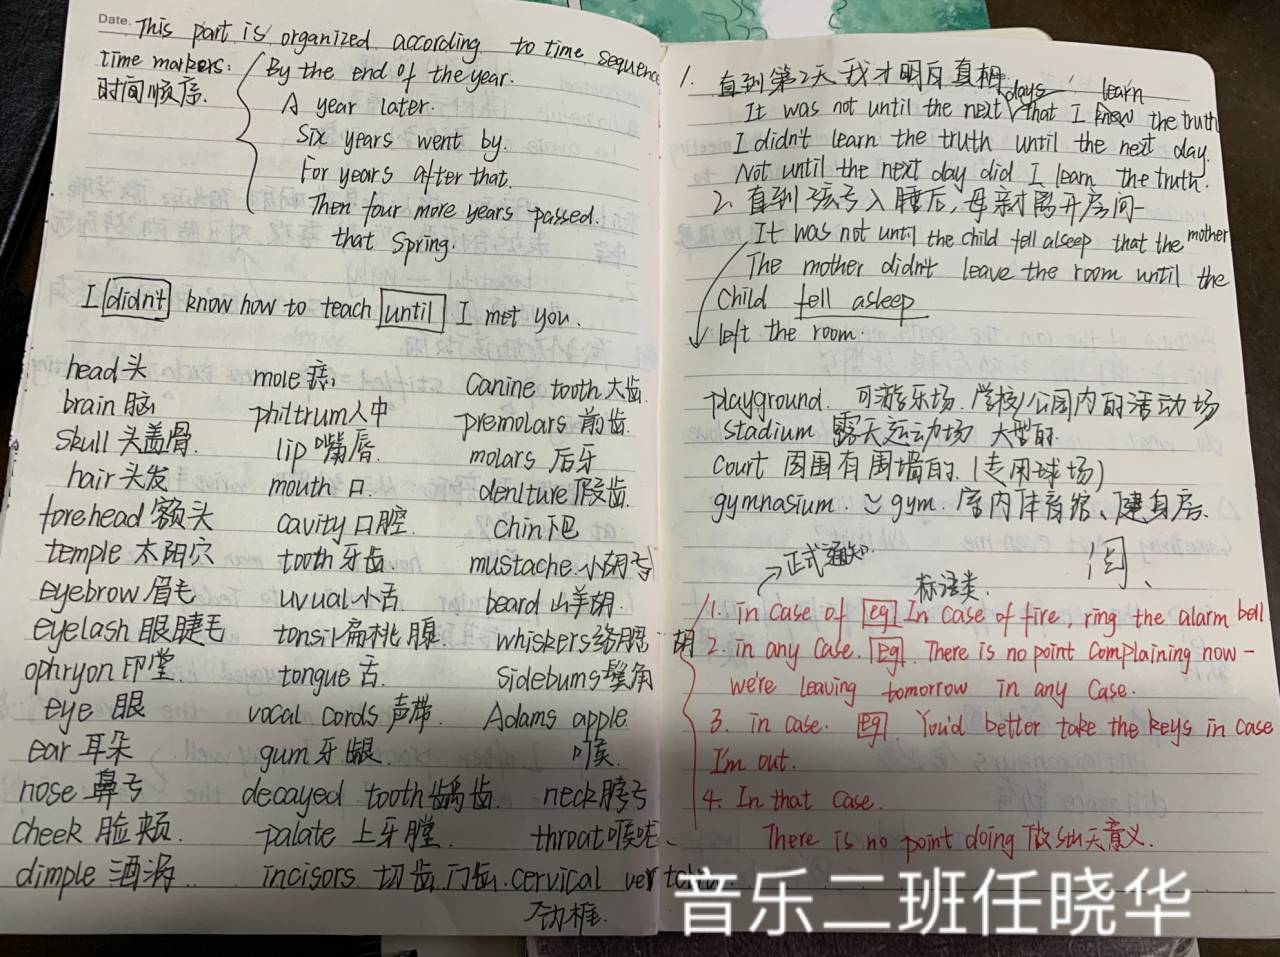 Date. This part is organized according to time sequence
time markers: By the end of the year.
时间顺序. A year later.
Six years went by.
For years after that.
Then four more years passed.
that Spring.
I didn't know how to teach until I met you.
head 头 mole 痣 Canine tooth 犬齿
brain 脑 philtrum 人中 premolars 前齿.
skull 头盖骨. lip 嘴唇 molars 后牙
hair 头发 mouth 口. denlture 假齿.
forehead 额头 cavity 口腔 chin 下巴
temple 太阳穴 tooth 牙齿 mustache. 小胡子
eyebrow 眉毛 uvual 小舌 beard 山羊胡.
eyelash 眼睫毛 tonsil 扁桃腺 whiskers 络腮胡
ophryon 印堂 tongue 舌. sideburns 鬓角
eye 眼 vocal cords 声带. Adams apple.
ear 耳朵 gum 牙龈. 喉
nose 鼻子 decayed tooth 龋齿. neck 脖子
cheek 脸颊. palate 上牙膛 throat 喉咙.
dimple 酒涡.. incisors 切齿 门齿. cervical
1. 直到第2天我才明白真相.
days learn
It was not until the next that I knew the truth
I didn't learn the truth until the next day.
Not until the next day did I learn the truth.
2. 直到孩子入睡后, 母亲才离开房间
It was not until the child fell asleep that the mother
left the room.
The mother didn't leave the room until the
child fell asleep
playground. 可游乐场. 学校/公园内的活动场
stadium 露天运动场 大型的.
court 周围有围墙的. (专用球场)
gymnasium. = gym. 室内体育馆、健身房.
正式通知.
标语类.
1. in case of eg In case of fire, ring the alarm bell
2. in any case. eg. There is no point complaining now -
we're leaving tomorrow in any case.
3. in case. eg. You'd better take the keys in case
I'm out.
4. In that case.
There is no point doing 做sth无意义.
音乐二班任晓华